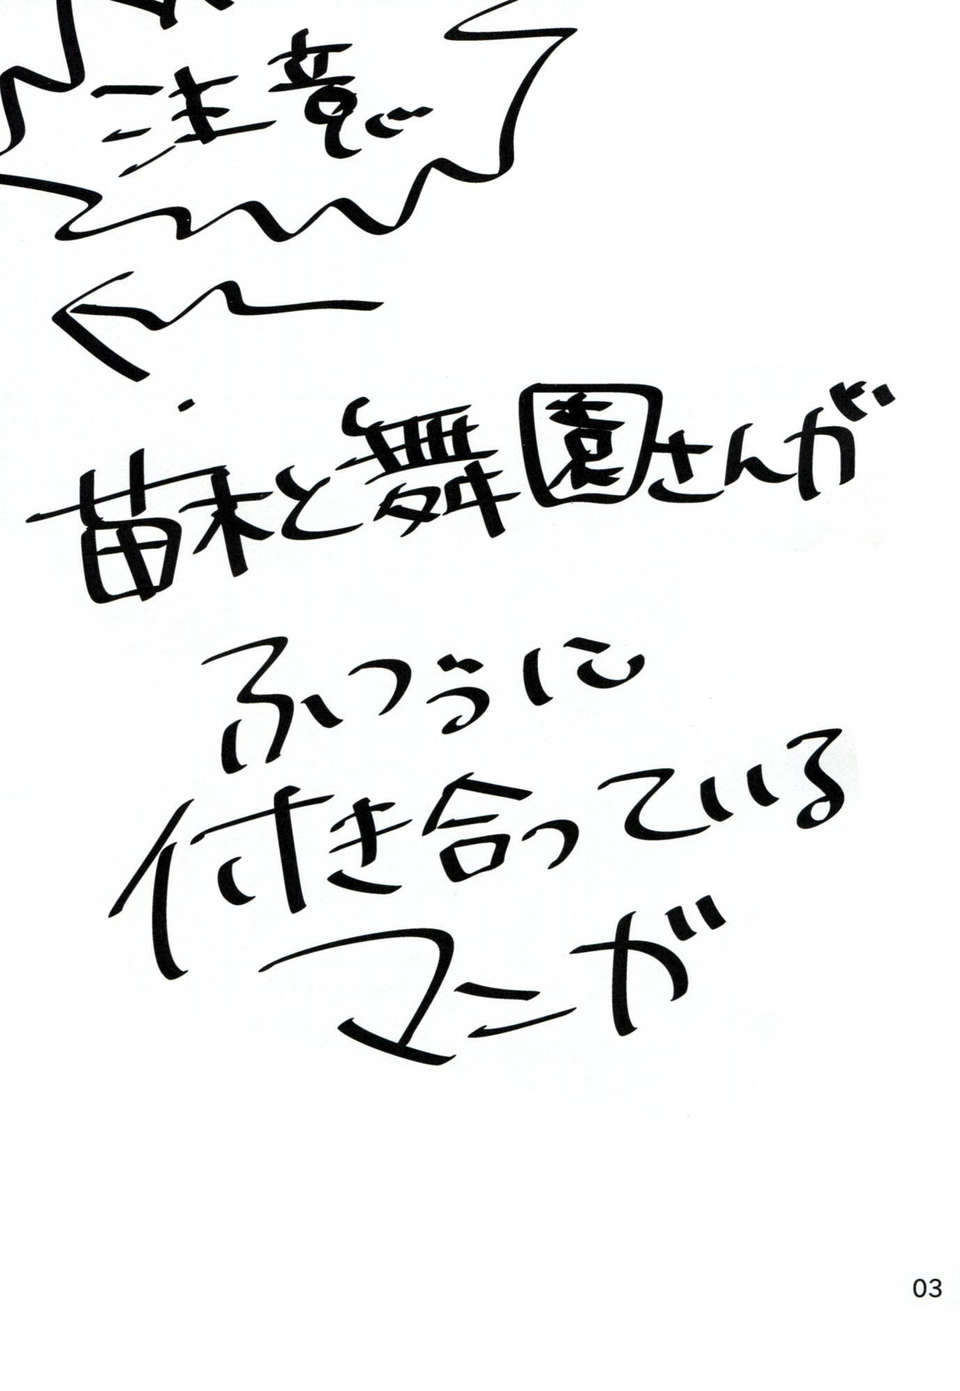 ご注意
苗木と舞園さんが
ふつうに
付き合っている
マンガ
03